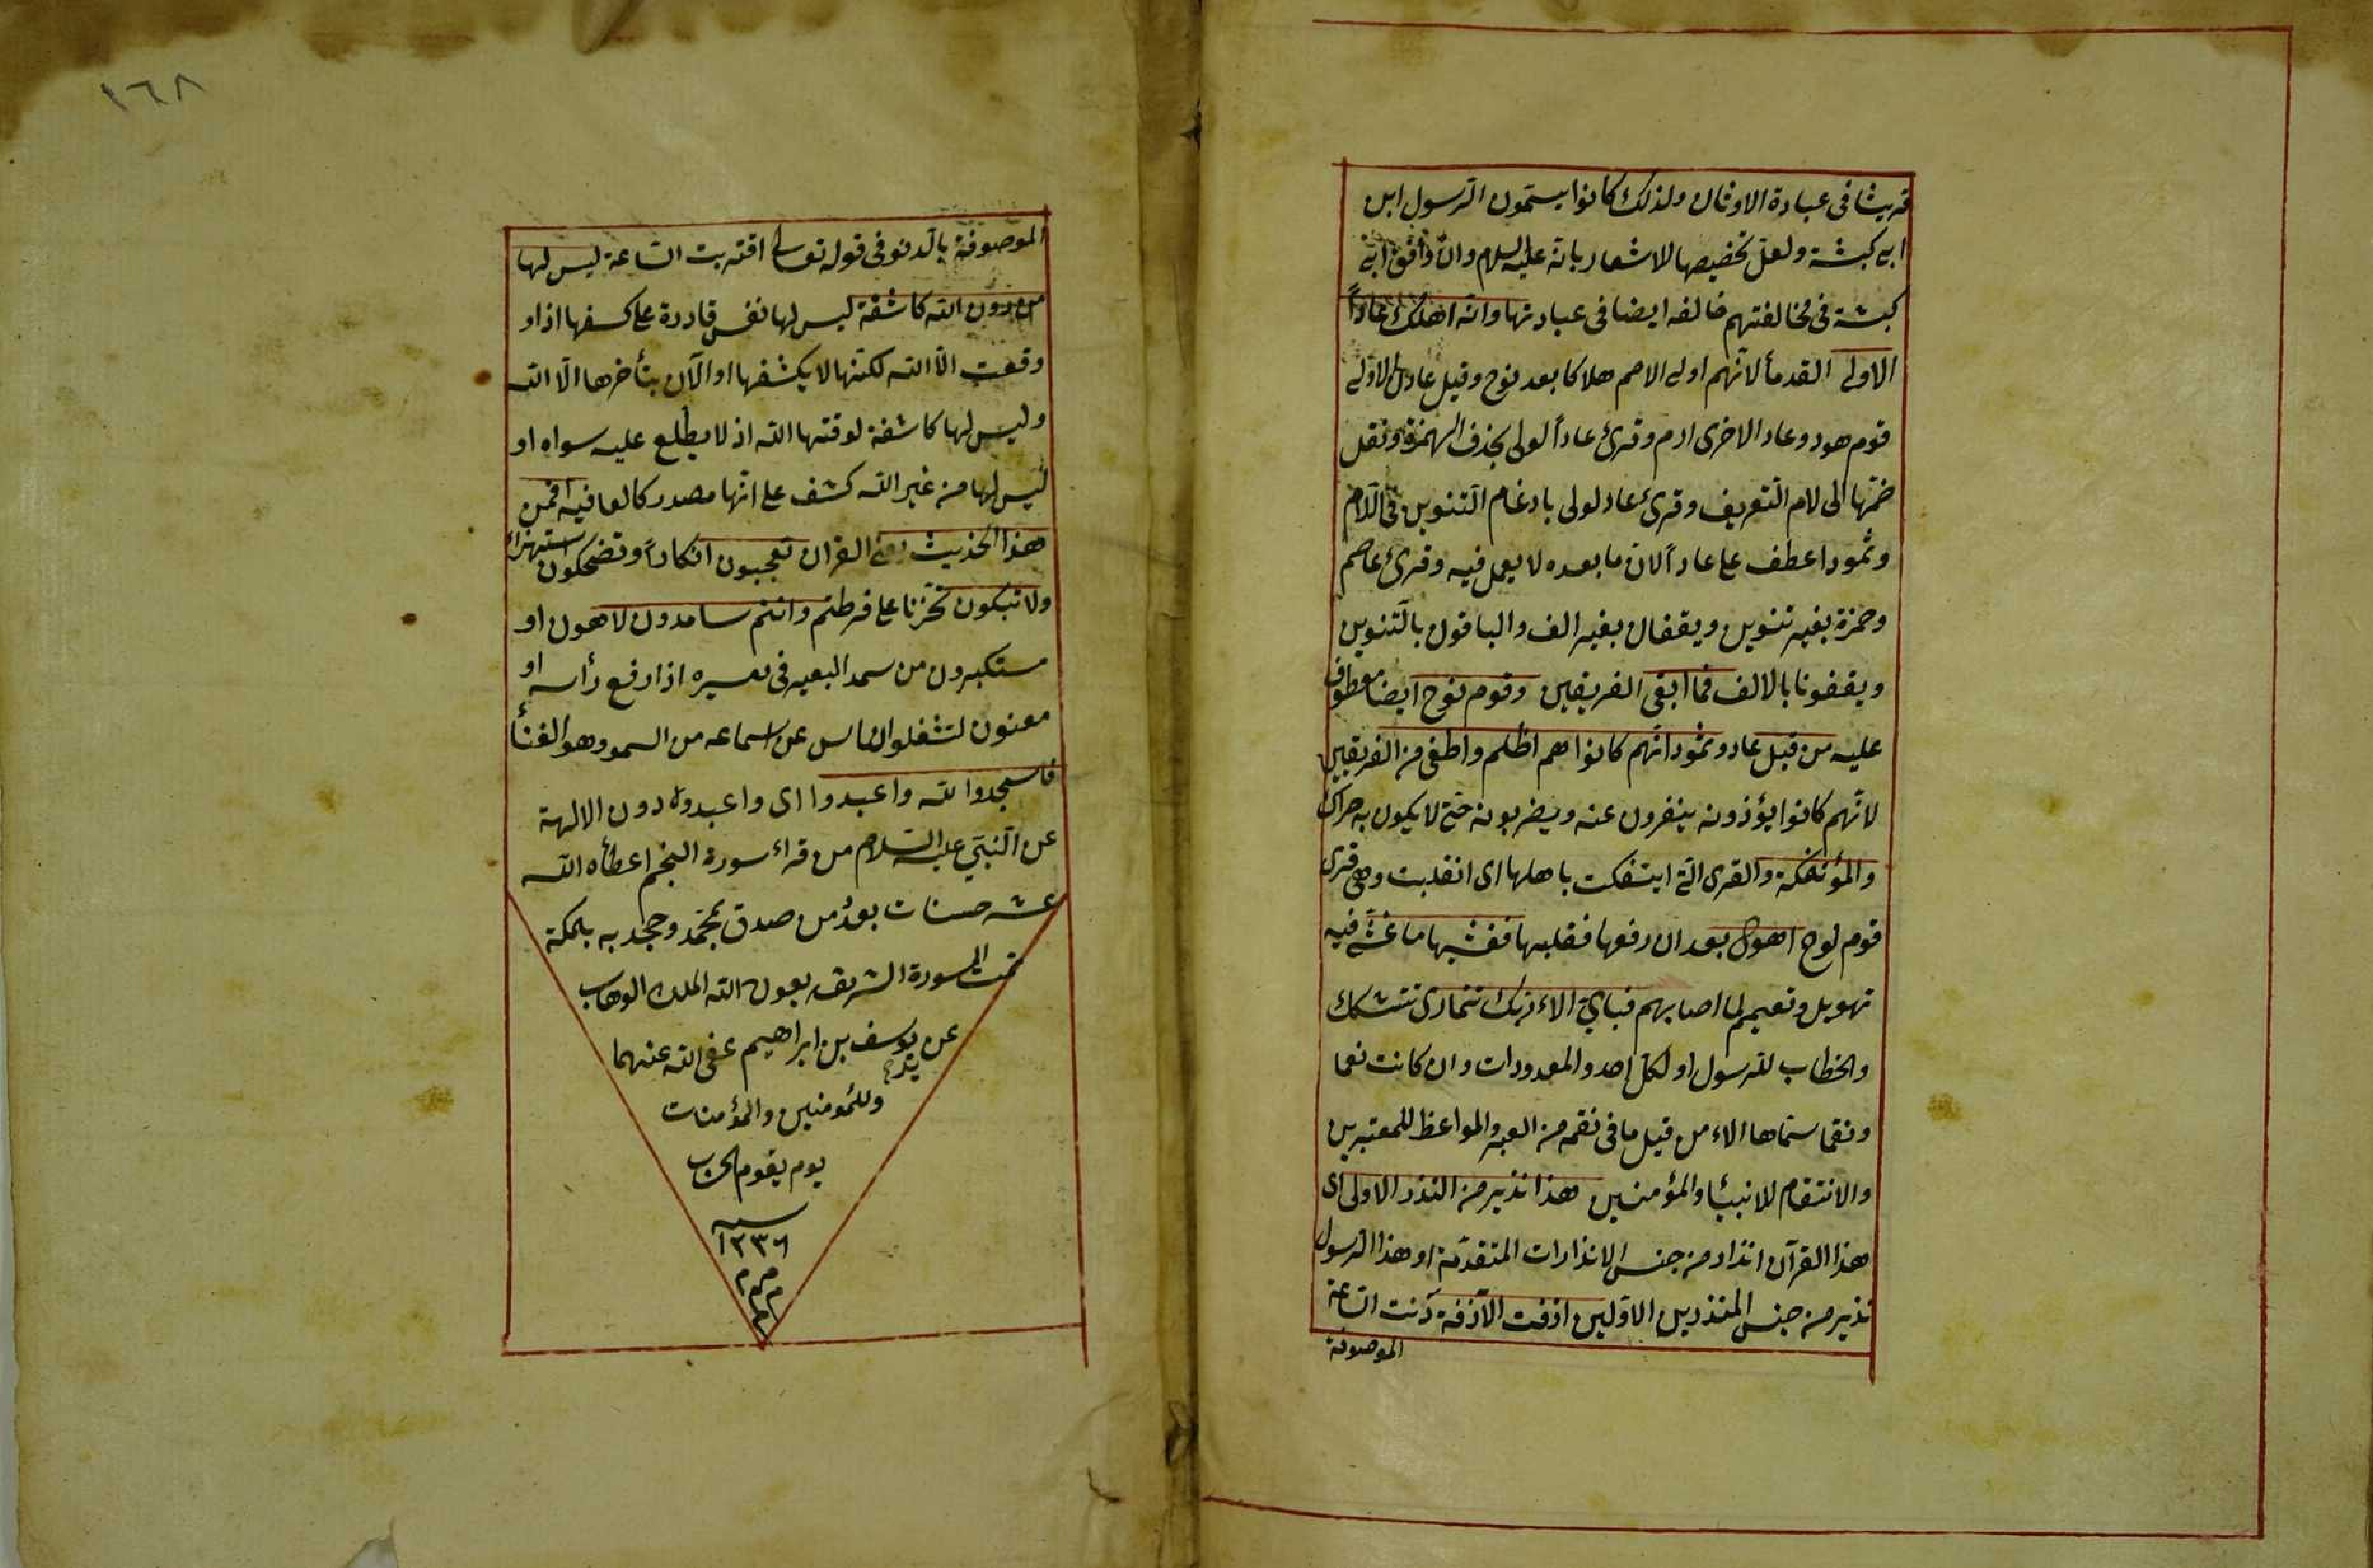 قريشا فى عبادة الاوثان ولذلك كانوا يسمّون الرّسول ابن
ابى كبشة ولعلّ تخصيصها للاشعار بانّه عليه السلام وان وافق ابى
كبشة فى مخالفتهم خالفه ايضا فى عبادتها وانّه اهلك عاداً
الاولى القدمأ لانّهم اولى الامم هلاكا بعد نوح وقيل عاد الاولى
قوم هود وعاد الاخرى ارم وقرئ عاداً لولى بحذف الهمزة ونقل
ضمّها الى لام التّعريف وقرئ عاد لولى بادغام التّنوين فى اللّام
وثمودا عطف على عاداً لان ما بعده لا يعمل فيه وقرئ عاصم
وحمزة بغير تنوين ويقفان بغير الف والباقون بالتّنوين
ويقفونا بالالف فما ابقى الفريقين وقوم نوح ايضا معطوف
عليه من قبل عاد وثمود انّهم كانوا هم اظلم واطغى من الفريقين
لانّهم كانوا يؤذونه ينفرون عنه ويضربونه حتّى لا يكون به حراك
والمؤتفكة والقرى الّتى ايتفكت باهلها اى انقلبت وهى قرى
قوم لوط اهوى بعد ان رفعها فقلبها فغشّيها ما غشّى فيه
تهويل وتعميم لما اصابهم فباىّ الاء ربّك تتمارى تتشكك
والخطاب للرّسول او لكلّ احد والمعدودات وان كانت نعما
ونقما سمّاها الاء من قبل ما فى نقمه من العبر والمواعظ للمعتبرين
والانتقام للانبيأ والمؤمنين هذا نذير من النذر الاولى اى
هذا القرآن انذار من جنس الانذارات المتقدّمة او هذا الرّسول
نذير من جنس المنذرين الاوّلين ازفت الآزفة دنت السّاعة
الموصوفة
١٦٨
الموصوفة بالدّنو فى قوله تعالى اقتربت السّاعة ليس لها
من دون اللّه كاشفة ليس لها نفس قادرة على كسفها اذا و
وقعت الّا اللّه لكنّها لا يكشفها او الآن بتأخرها الّا اللّه
وليس لها كاشفة لوقتها اللّه اذ لا يطّلع عليه سواه او
ليس لها من غير اللّه كشف على انّها مصدر كالعافيه افمن
هذا الحديث يعنى القران تعجبون انكاراً وتضحكون استهزاء
ولا تبكون تحزّنا على فرطتم وانتم سامدون لاهون او
مستكبرون من سمد البعير فى مسيره اذا رفع رأسه او
مغنون لتشغلوا الناس عن اسماعه من السمود وهو الغنأ
فاسجدوا للّه واعبدوا اى واعبدوه دون الالهة
عن النّبىّ عليه السّلام من قراء سورة النجم اعطاه اللّه
عشر حسنات بعدد من صدق بمحمّد وجحد به بمكة
تمت السورة الشريفه بعون اللّه الملك الوهاب
عن يد يوسف بن ابراهيم عفى اللّه عنهما
وللمؤمنين والمؤمنات
يوم يقوم الحساب
سنه
١٢٣٦
م م م
م